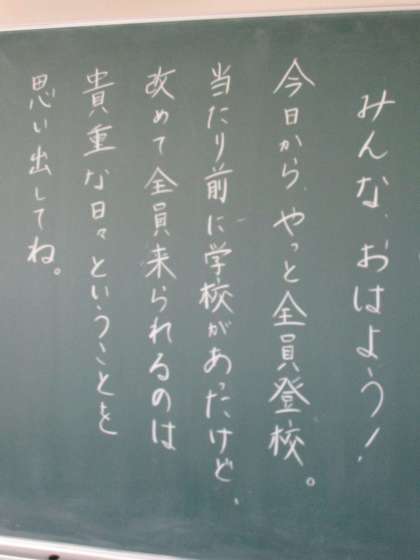 みんな、おはよう！
今日から、やっと全員登校。
当たり前に学校があったけど、
改めて全員来られるのは
貴重な日々ということを
思い出してね。